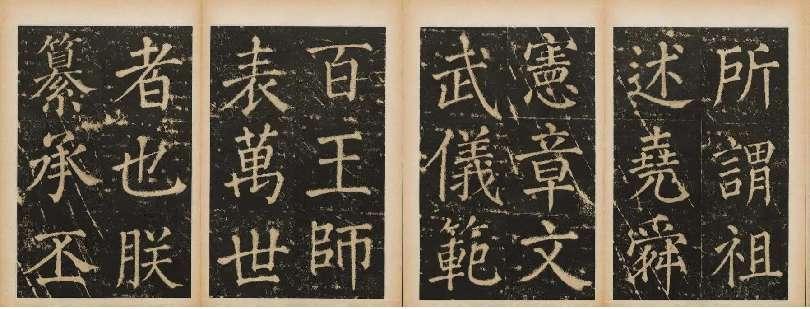 所謂祖
述堯舜
憲章文
武儀範
百王師
表萬世
者也朕
纂承丕